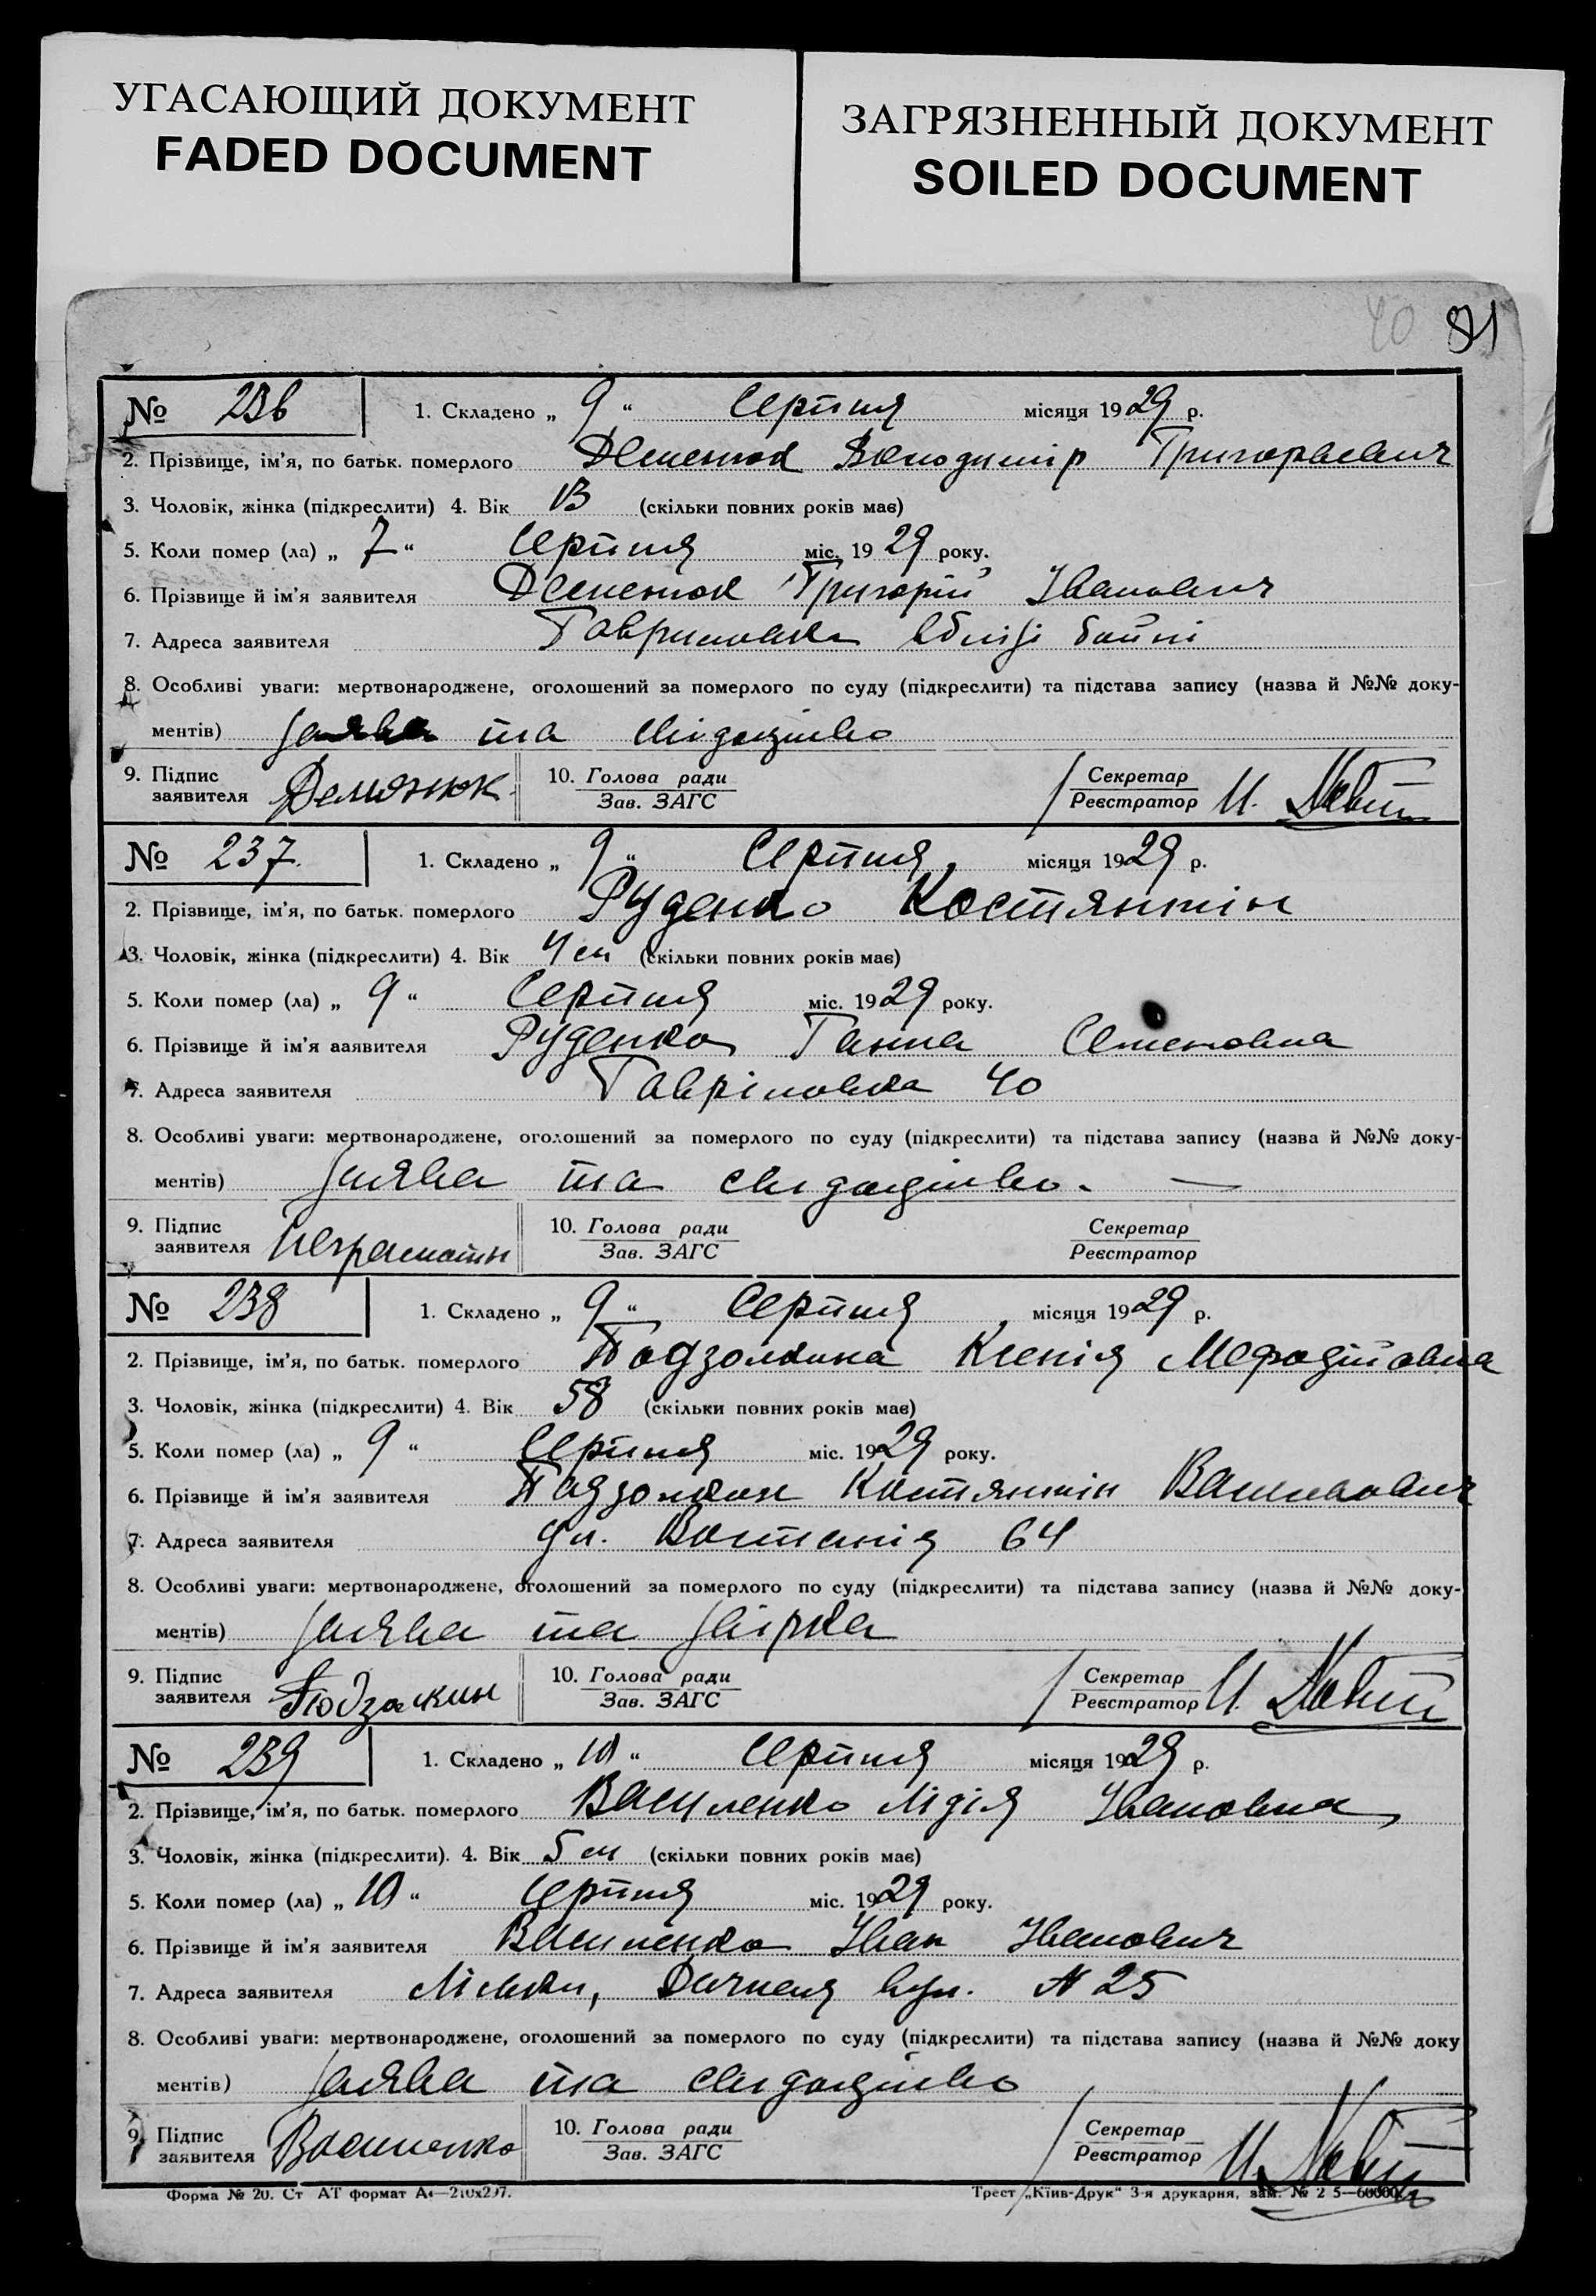 УГАСАЮЩИЙ ДОКУМЕНТ
FADED DOCUMENT
ЗАГРЯЗНЕННЫЙ ДОКУМЕНТ
SOILED DOCUMENT
40 91
№ 236 1. Складено „ 9 “ Серпня місяця 1929 р.
2. Прізвище, ім’я, по батьк. померлого Деменюк Володимір Григорьевич
3. Чоловік, жінка (підкреслити) 4. Вік 13 (скільки повних років має)
5. Коли помер (ла) „ 7 “ Серпня міс. 1929 року.
6. Прізвище й ім’я заявителя Деменюк Григорій Іванович
7. Адреса заявителя Гавриловка вблизі бойні
8. Особливі уваги: мертвонароджене, оголошений за померлого по суду (підкреслити) та підстава запису (назва й №№ доку-
ментів) Заява та свідоцтво
9. Підпис заявителя Деменюк 10. Голова ради Зав. ЗАГС Секретар Реєстратор И.
№ 237. 1. Складено „ 9 “ Серпня місяця 1929 р.
2. Прізвище, ім’я, по батьк. померлого Руденко Костянтін
3. Чоловік, жінка (підкреслити) 4. Вік 4 м (скільки повних років має)
5. Коли помер (ла) „ 9 “ Серпня міс. 1929 року.
6. Прізвище й ім’я ааявителя Руденко Ганна Семеновна
7. Адреса заявителя Гавріловка 40
8. Особливі уваги: мертвонароджене, оголошений за померлого по суду (підкреслити) та підстава запису (назва й №№ доку-
ментів) Заява та свидоцтво. —
9. Підпис заявителя Неграмотн 10. Голова ради Зав. ЗАГС Секретар Реєстратор
№ 238 1. Складено „ 9 “ Серпня місяця 1929 р.
2. Прізвище, ім’я, по батьк. померлого Подзолкина Ксенія Мефодійовна
3. Чоловік, жінка (підкреслити) 4. Вік 58 (скільки повних років має)
5. Коли помер (ла) „ 9 “ Серпня міс. 1929 року.
6. Прізвище й ім’я заявителя Подзолкин Костянтін Васильович
7. Адреса заявителя ул. Востанія 64
8. Особливі уваги: мертвонароджене, оголошений за померлого по суду (підкреслити) та підстава запису (назва й №№ доку-
ментів) Заява та звірка
9. Підпис заявителя 10. Голова ради Зав. ЗАГС Секретар Реєстратор И.
№ 239 1. Складено „ 10 “ Серпня місяця 1929 р.
2. Прізвище, ім’я, по батьк. померлого Василенко Лідія Івановна
3. Чоловік, жінка (підкреслити). 4. Вік 5 м (скільки повних років має)
5. Коли помер (ла) „ 10 “ Серпня міс. 1929 року.
6. Прізвище й ім’я заявителя Василенко Іван Іванович
7. Адреса заявителя Дачная вул. N 25
8. Особливі уваги: мертвонароджене, оголошений за померлого по суду (підкреслити) та підстава запису (назва й №№ доку
ментів) Заява та свидоцтво
9. Підпис заявителя Василенко 10. Голова ради Зав. ЗАГС Секретар Реєстратор И.
Форма № 20. Ст АТ формат А4—210х297. Трест „Київ-Друк“ 3-я друкарня, зам. №